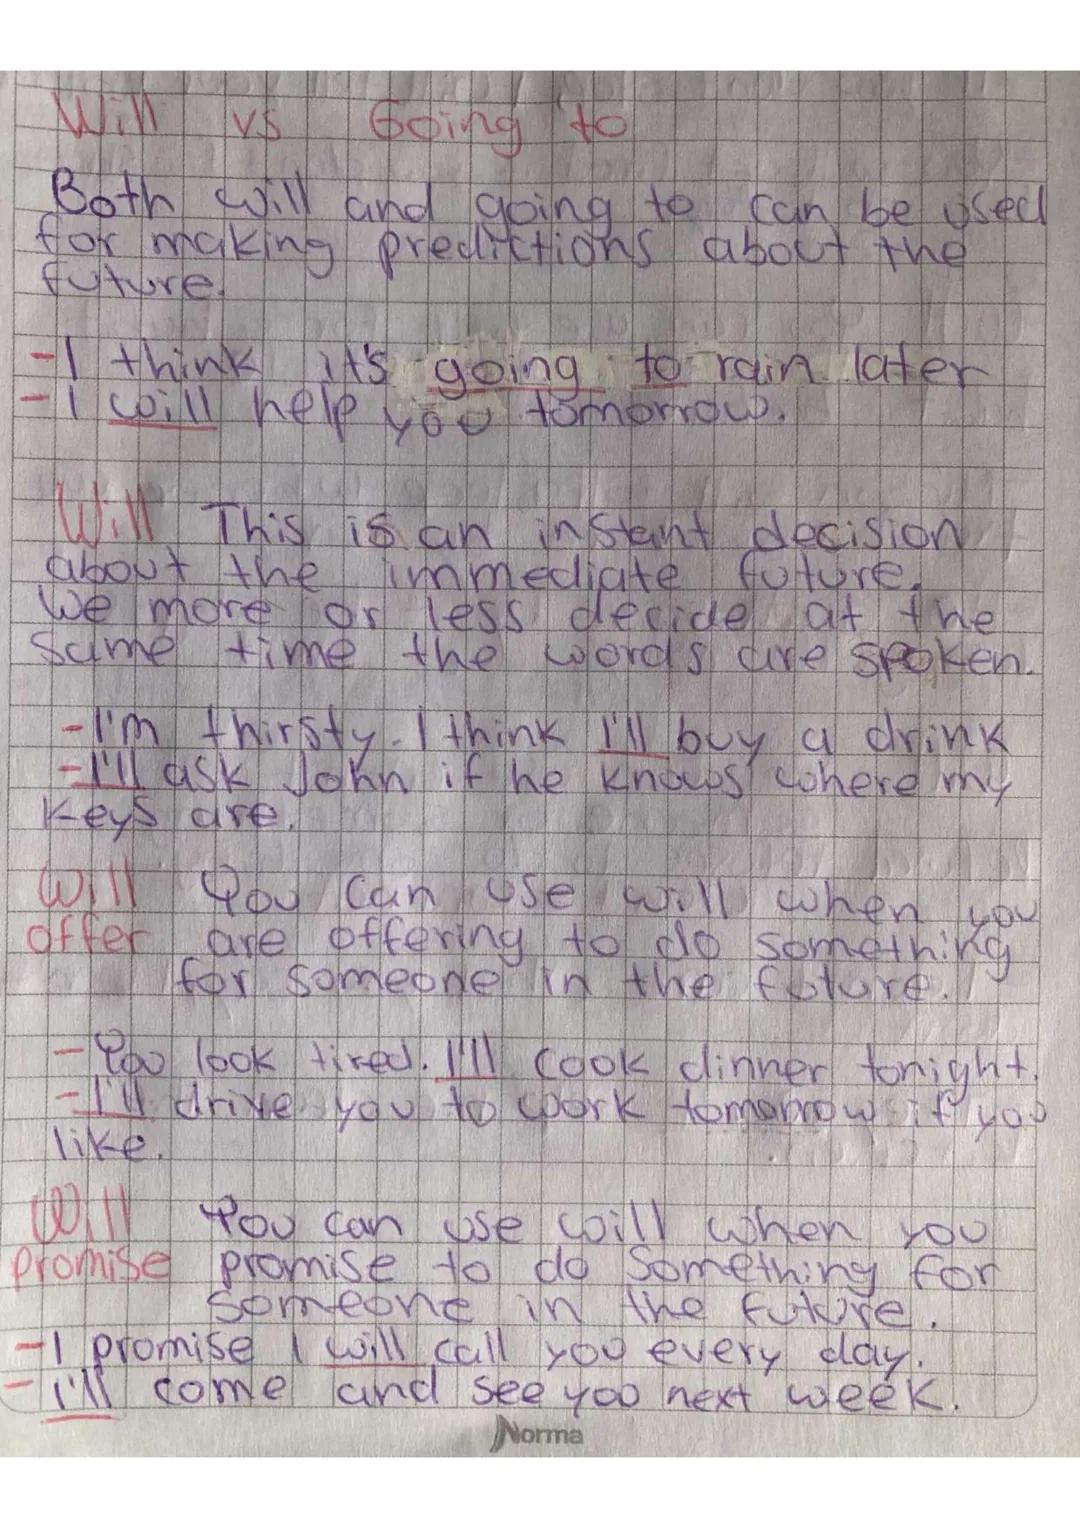 Will vs Going to
Both will and going to can be used
for making predictions about the
future.
-I think it's going to rain later
-I will help you tomorrow.
Will This is an instant decision
about the immediate future.
We more or less decide at the
same time the words are spoken.
-I'm thirsty. I think I'll buy a drink
-I'll ask John if he knows where my
keys are.
Will You can use will when you
offer are offering to do something
for someone in the future.
-You look tired. I'll cook dinner tonight.
-I'll drive you to work tomorrow if you
like.
Will You can use will when you
promise promise to do something for
someone in the future.
-I promise I will call you every day.
-I'll come and see you next week.
Norma